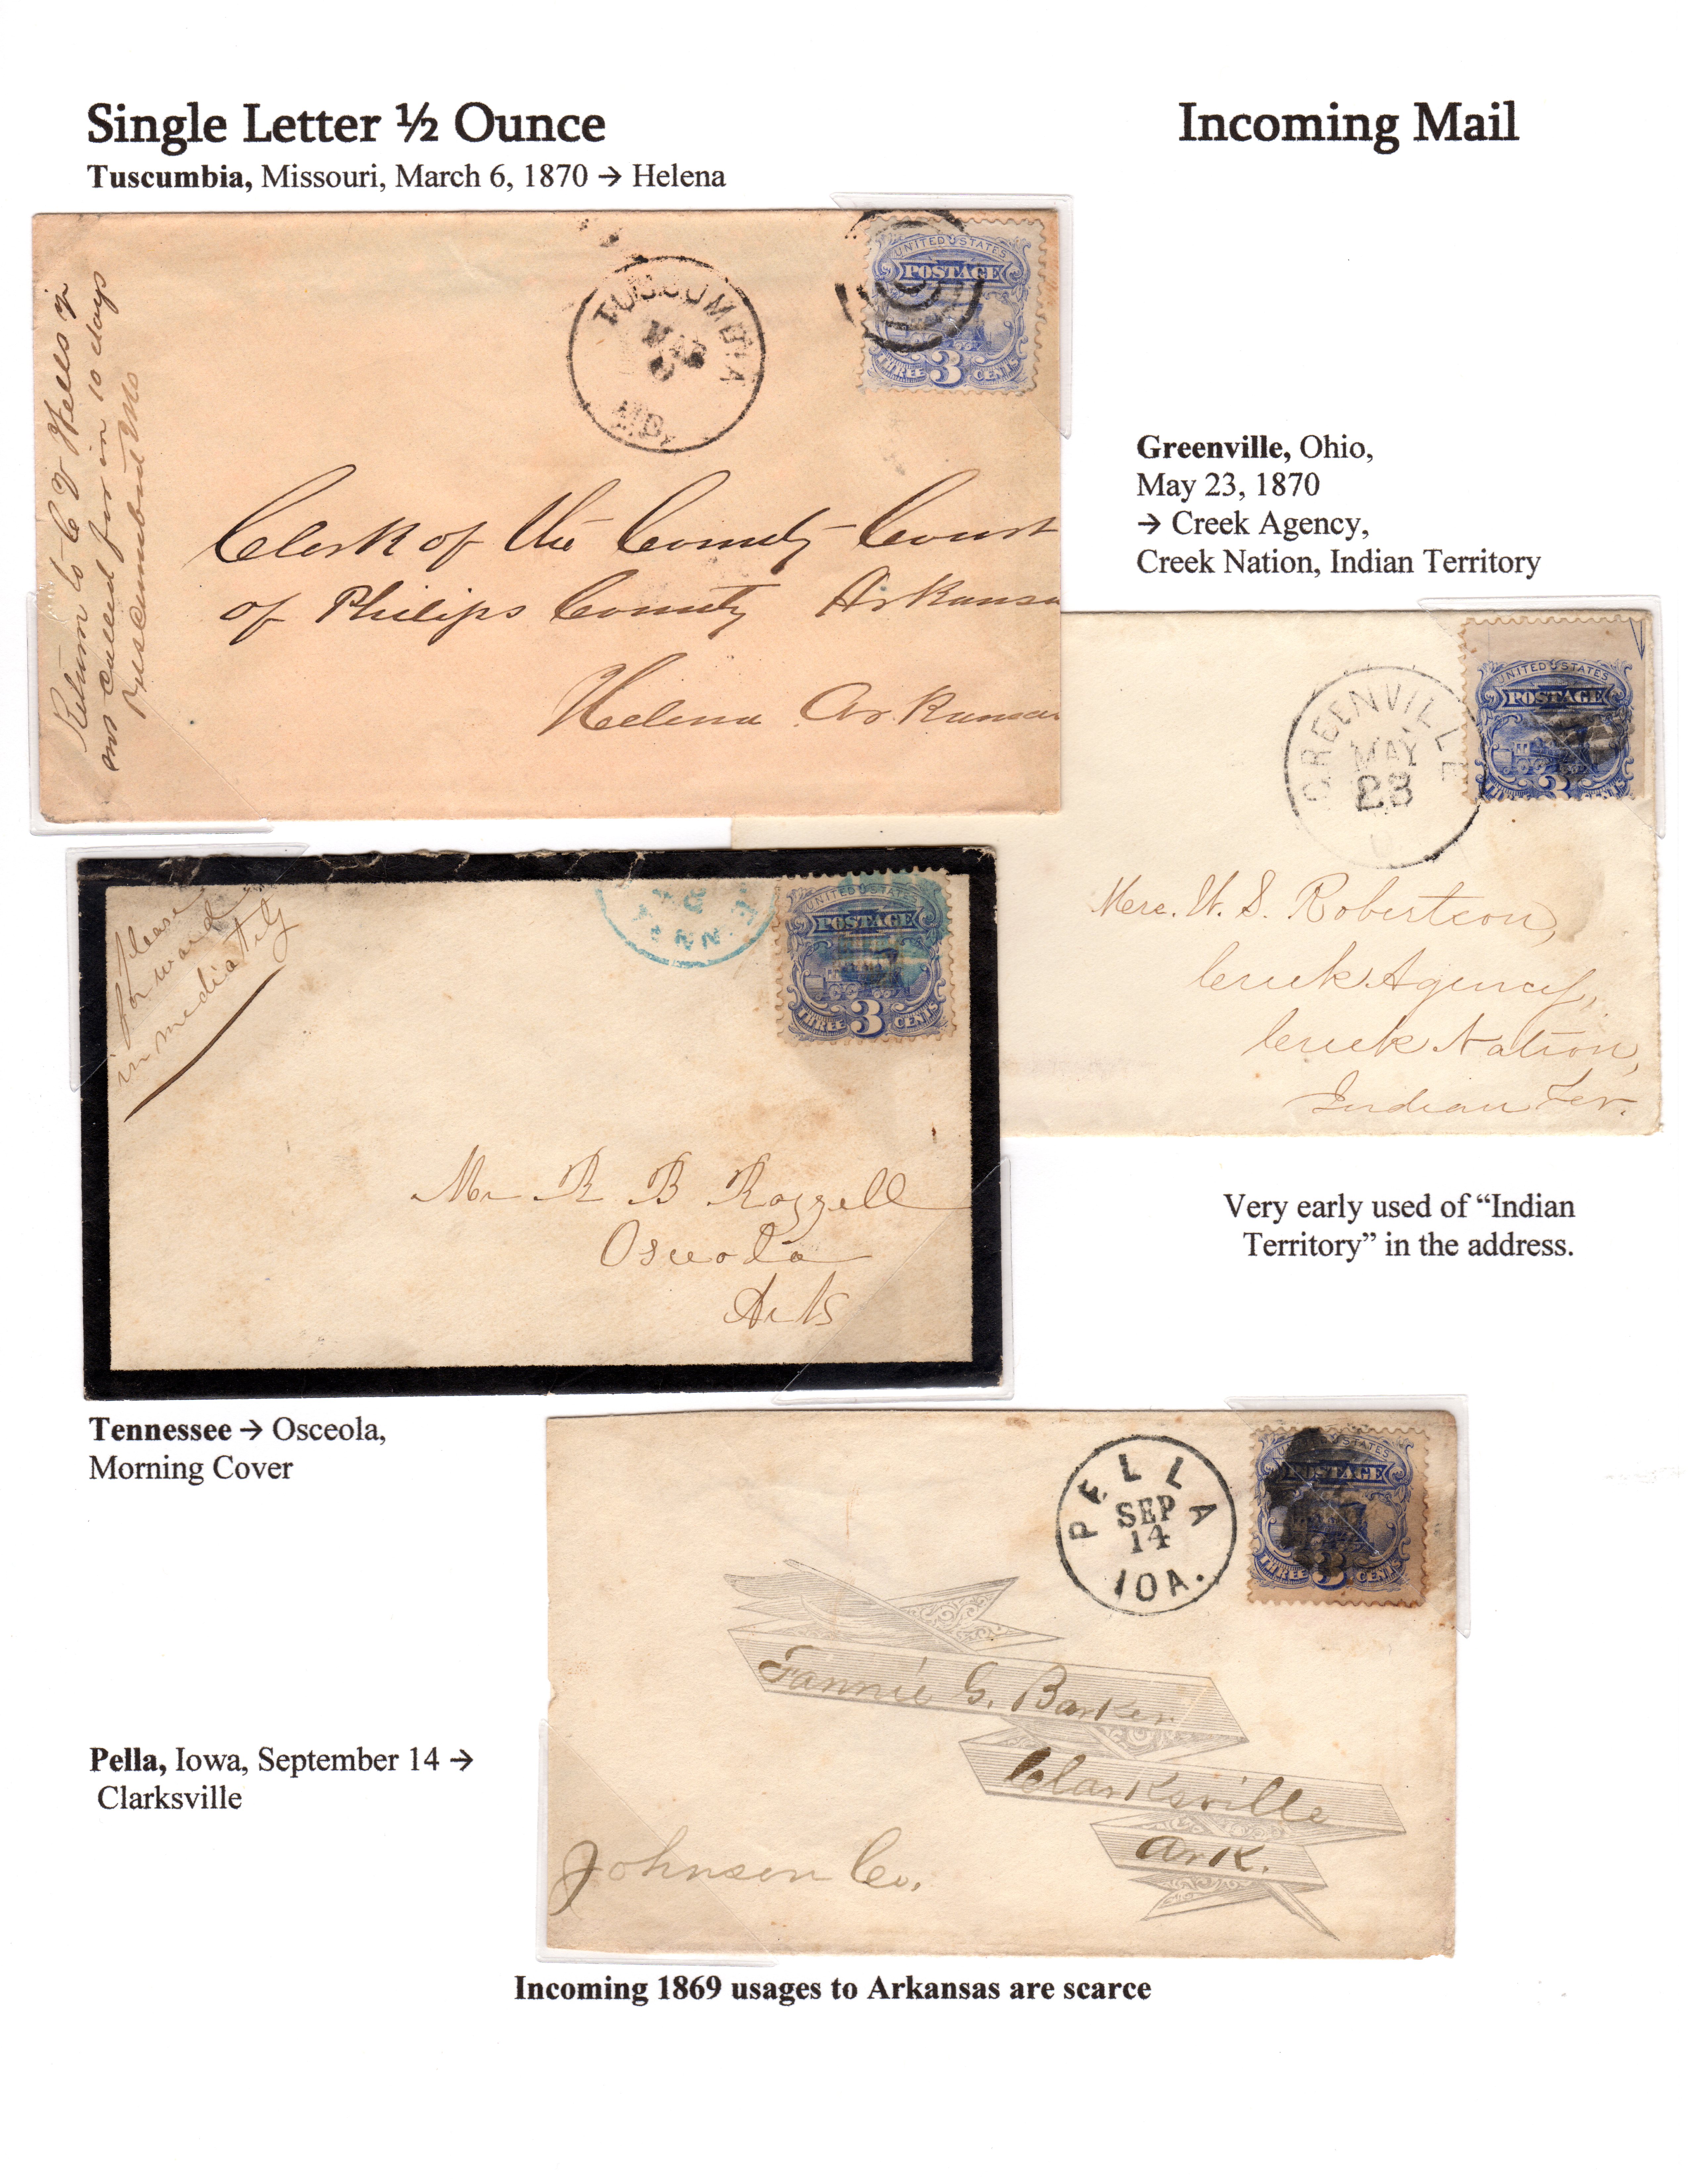 Single Letter ½ Ounce
Incoming Mail
Tuscumbia, Missouri, March 6, 1870 → Helena
Return to C V Wells if
not called for in 10 days
Tuscumbia Mo
TUSCUMBIA
MAR
6
MO.
UNITED STATES
POSTAGE
THREE 3 CENTS
Clerk of the County Court
of Philips County Arkansa
Helena Arkansas
Greenville, Ohio,
May 23, 1870
→ Creek Agency,
Creek Nation, Indian Territory
GREENVILLE
MAY
23
O
UNITED STATES
POSTAGE
3
Mrs. W. S. Robertson,
Creek Agency,
Creek Nation,
Indian Ter.
Very early used of “Indian
Territory” in the address.
please
forward
immediately
UNITED STATES
POSTAGE
THREE 3 CENTS
Mr R B Rozzell
Osceola
Arks
Tennessee → Osceola,
Morning Cover
PELLA
SEP
14
IOA.
UNITED STATES
POSTAGE
THREE 3 CENTS
Fannie G. Barker
Clarksville
Ark.
Johnson Co.
Pella, Iowa, September 14 →
Clarksville
Incoming 1869 usages to Arkansas are scarce